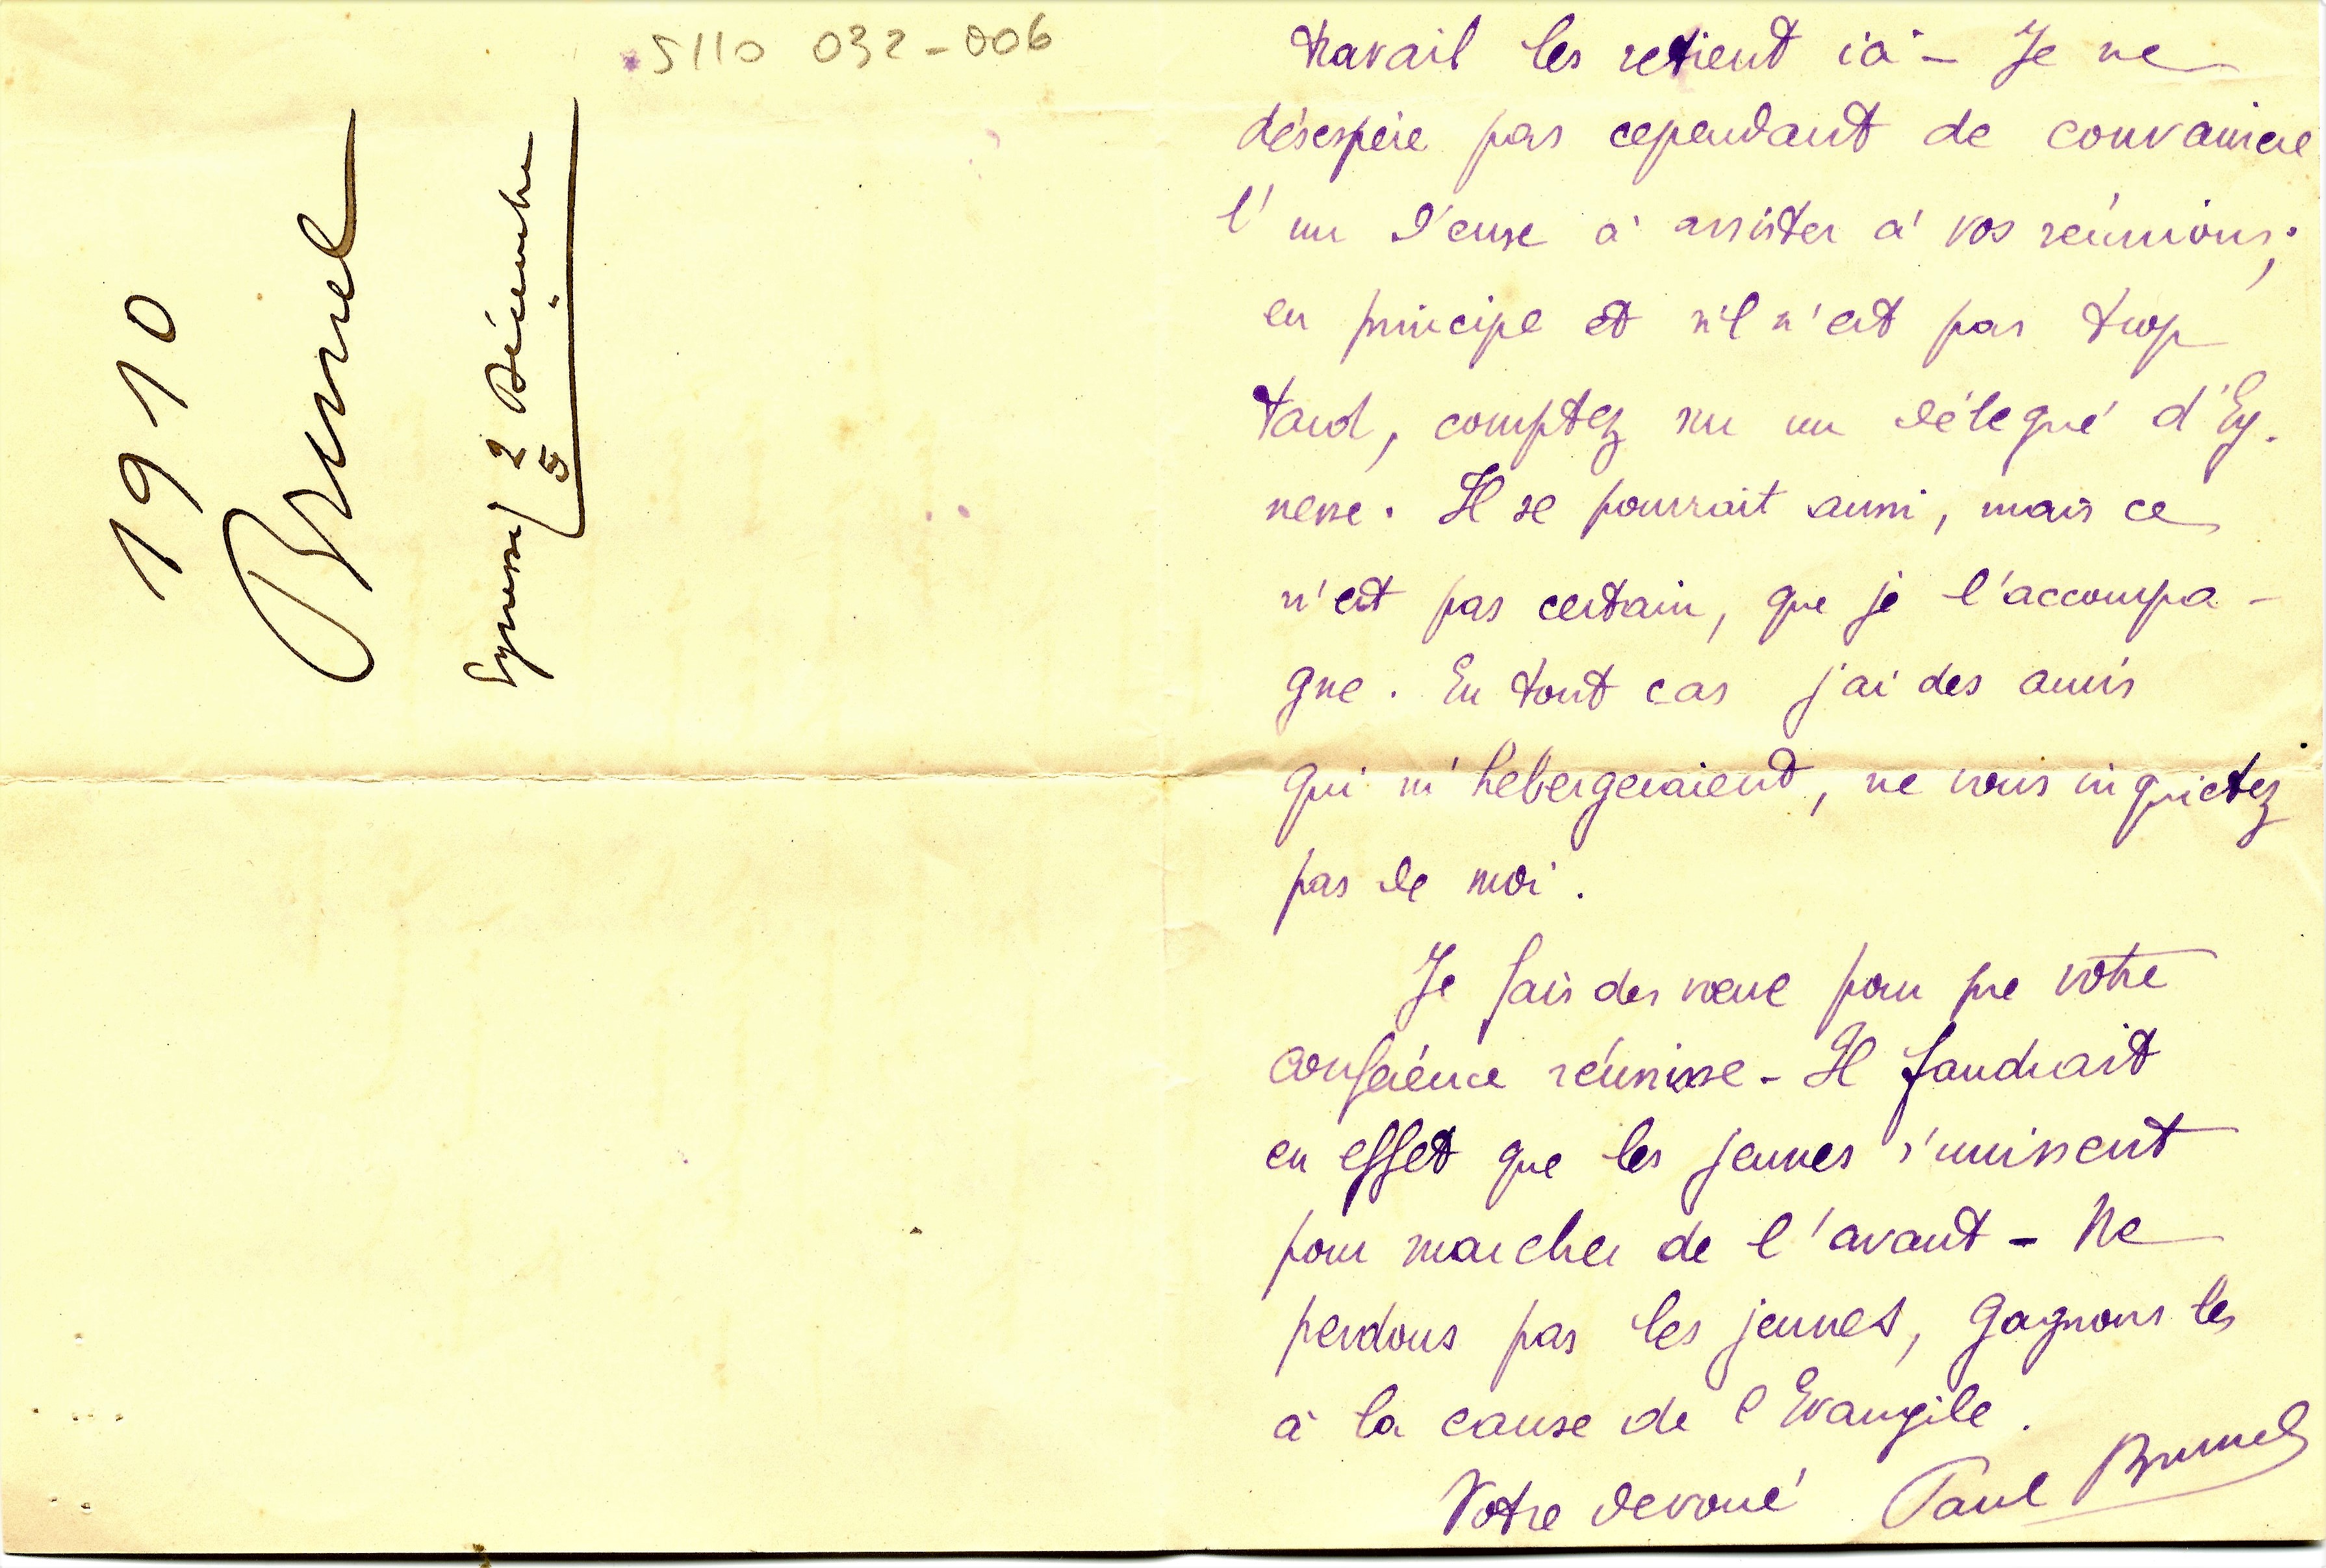 5110 032-006
1910
Brunel
Eynesse 2 Décembre
5
travail les retient ici - Je ne
désespère pas cependant de convaincre
l'un d'euse à assister à vos réunions;
en principe et s'il n'est pas trop
tard, comptez sur un délégué d'Ey.
nesse. Il se pourrait aussi, mais ce
n'est pas certain, que je l'accompa-
gne. En tout cas j'ai des amis
qui m'hebergeraient, ne vous inquietez
pas de moi.
Je fais des vœux pour que votre
conférence réussisse - Il faudrait
en effet que les jeunes s'unissent
pour marcher de l'avant - Ne
perdons pas les jeunes, gagnons les
à la cause de l'Evangile.
Votre dévoué Paul Brunel